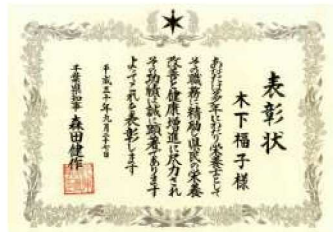 表彰状
木下福子様
あなたは多年にわたり栄養士として
その職務に精励し県民の栄養
改善と健康増進に尽力され
その功績は誠に顕著であります
よってこれを表彰します
平成三十年九月二十七日
千葉県知事 森田健作